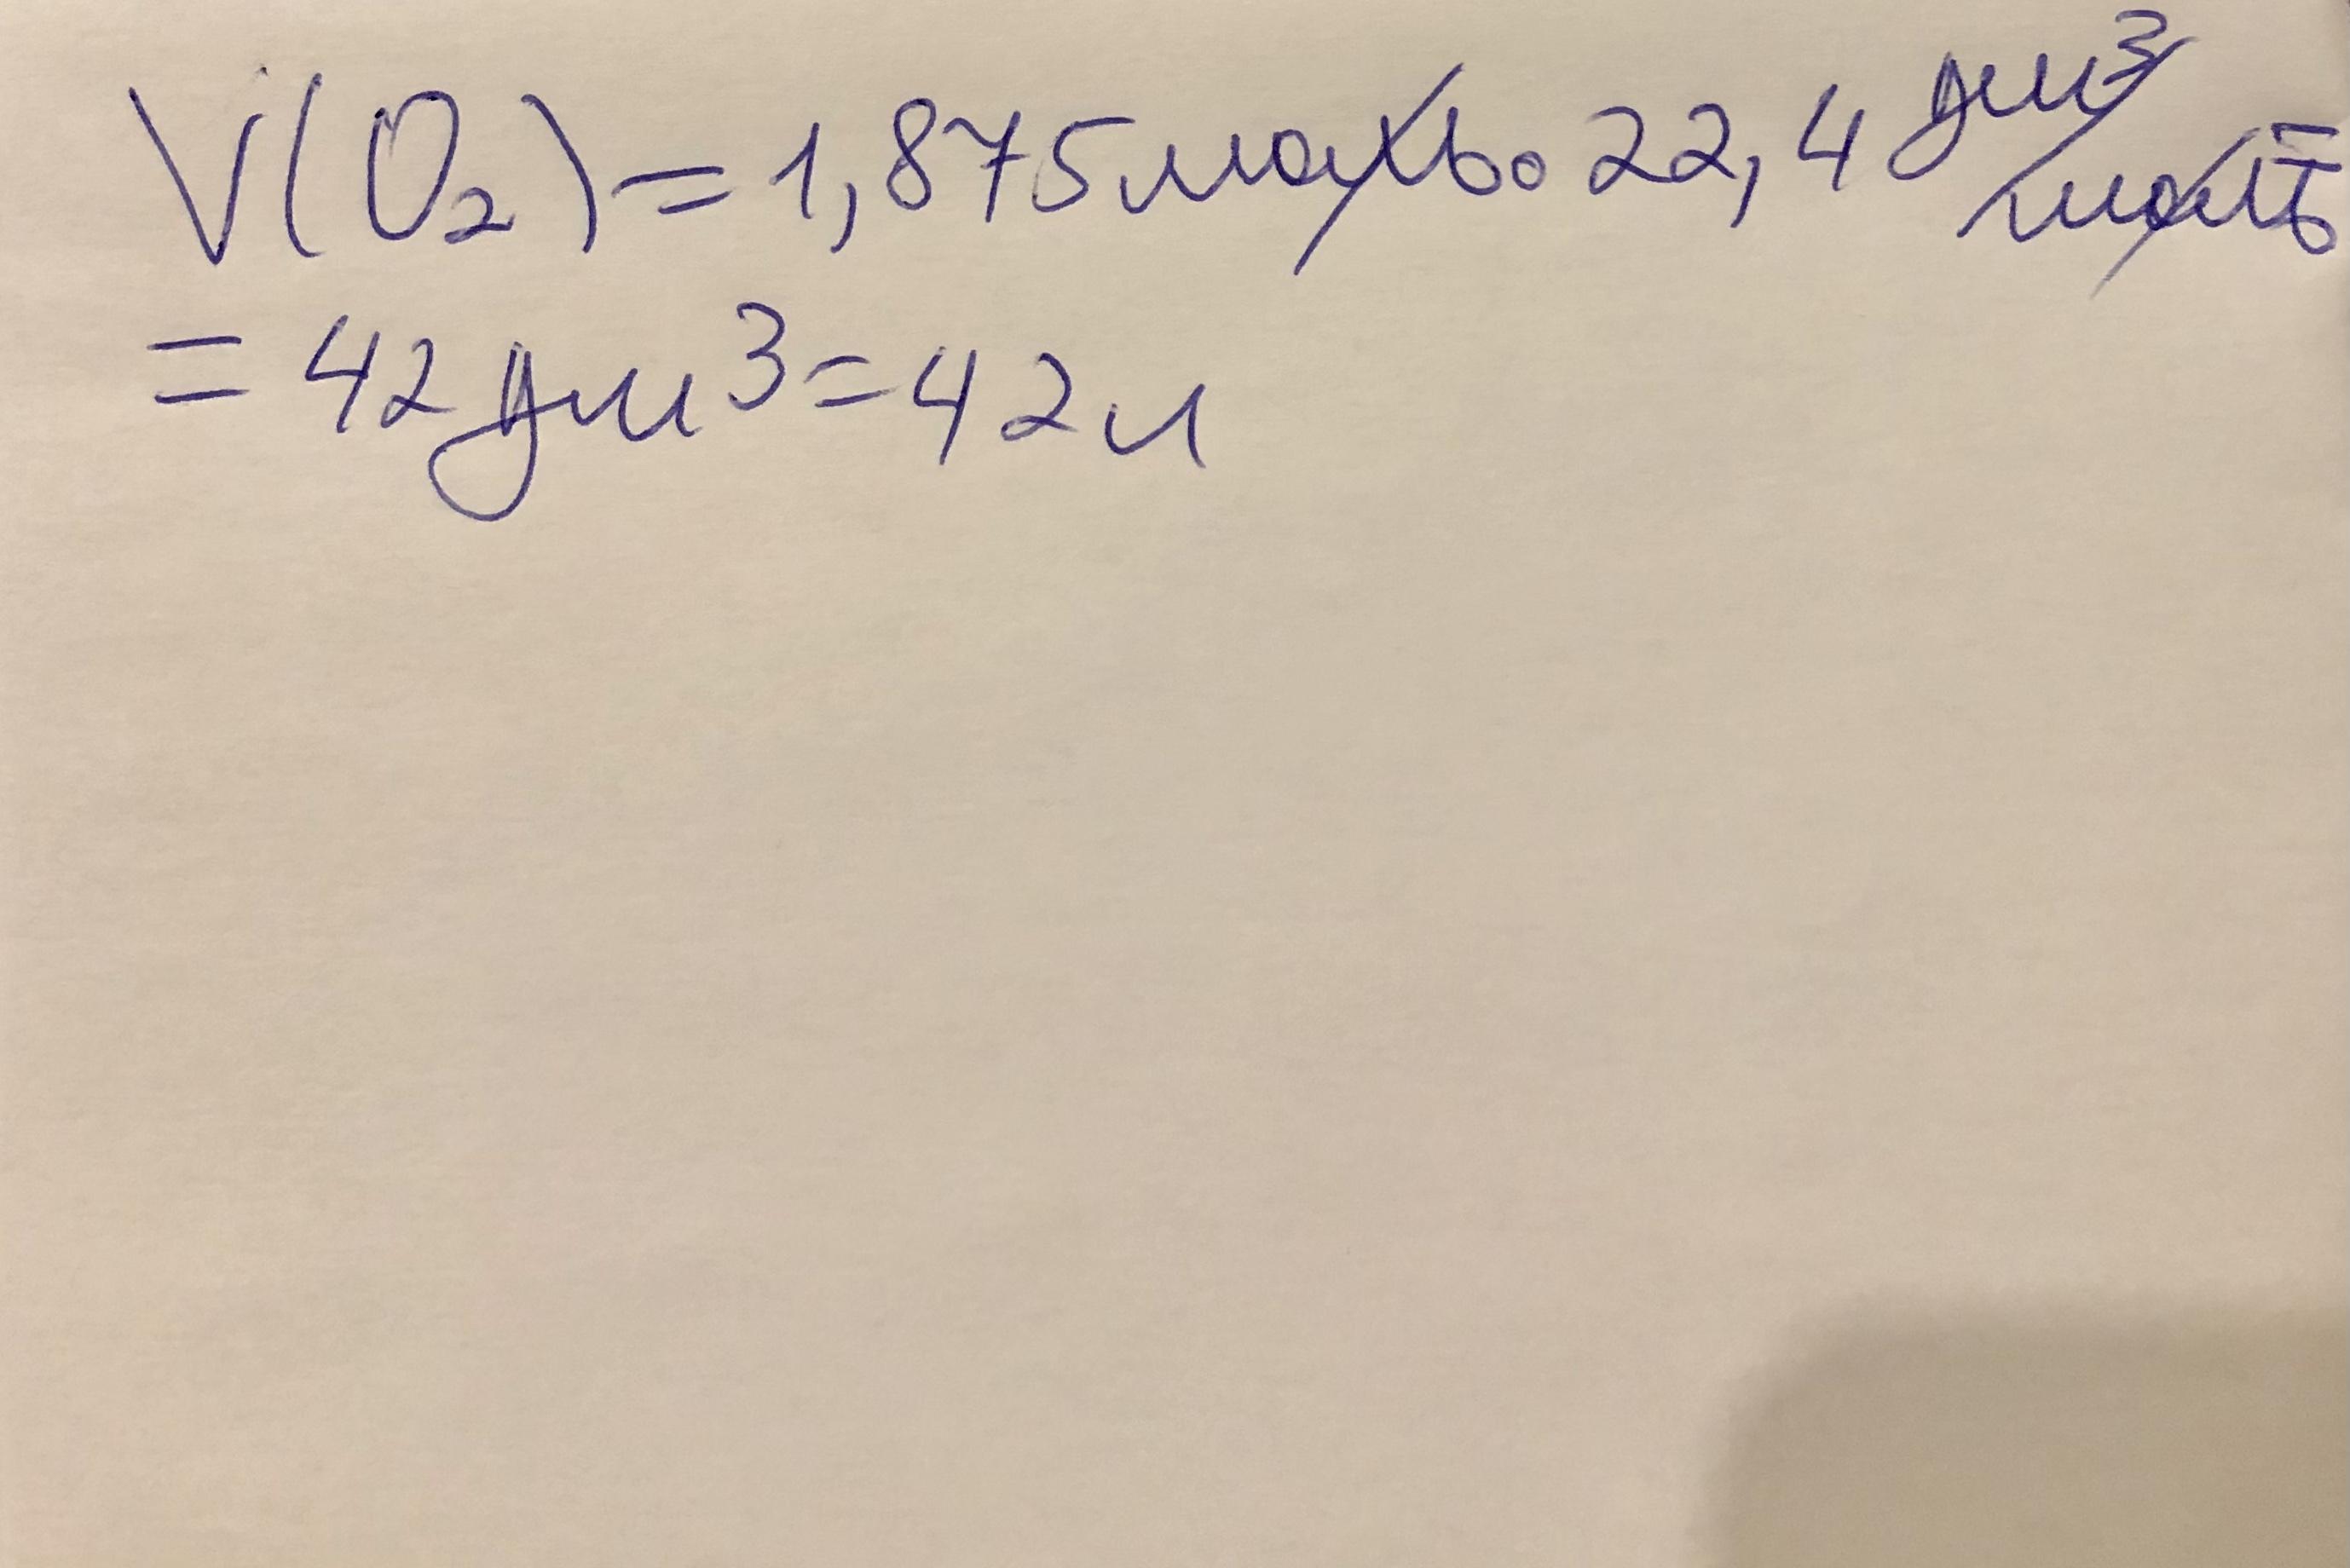 V(O₂) = 1,875 моль · 22,4 дм³/моль =
= 42 дм³ = 42 л